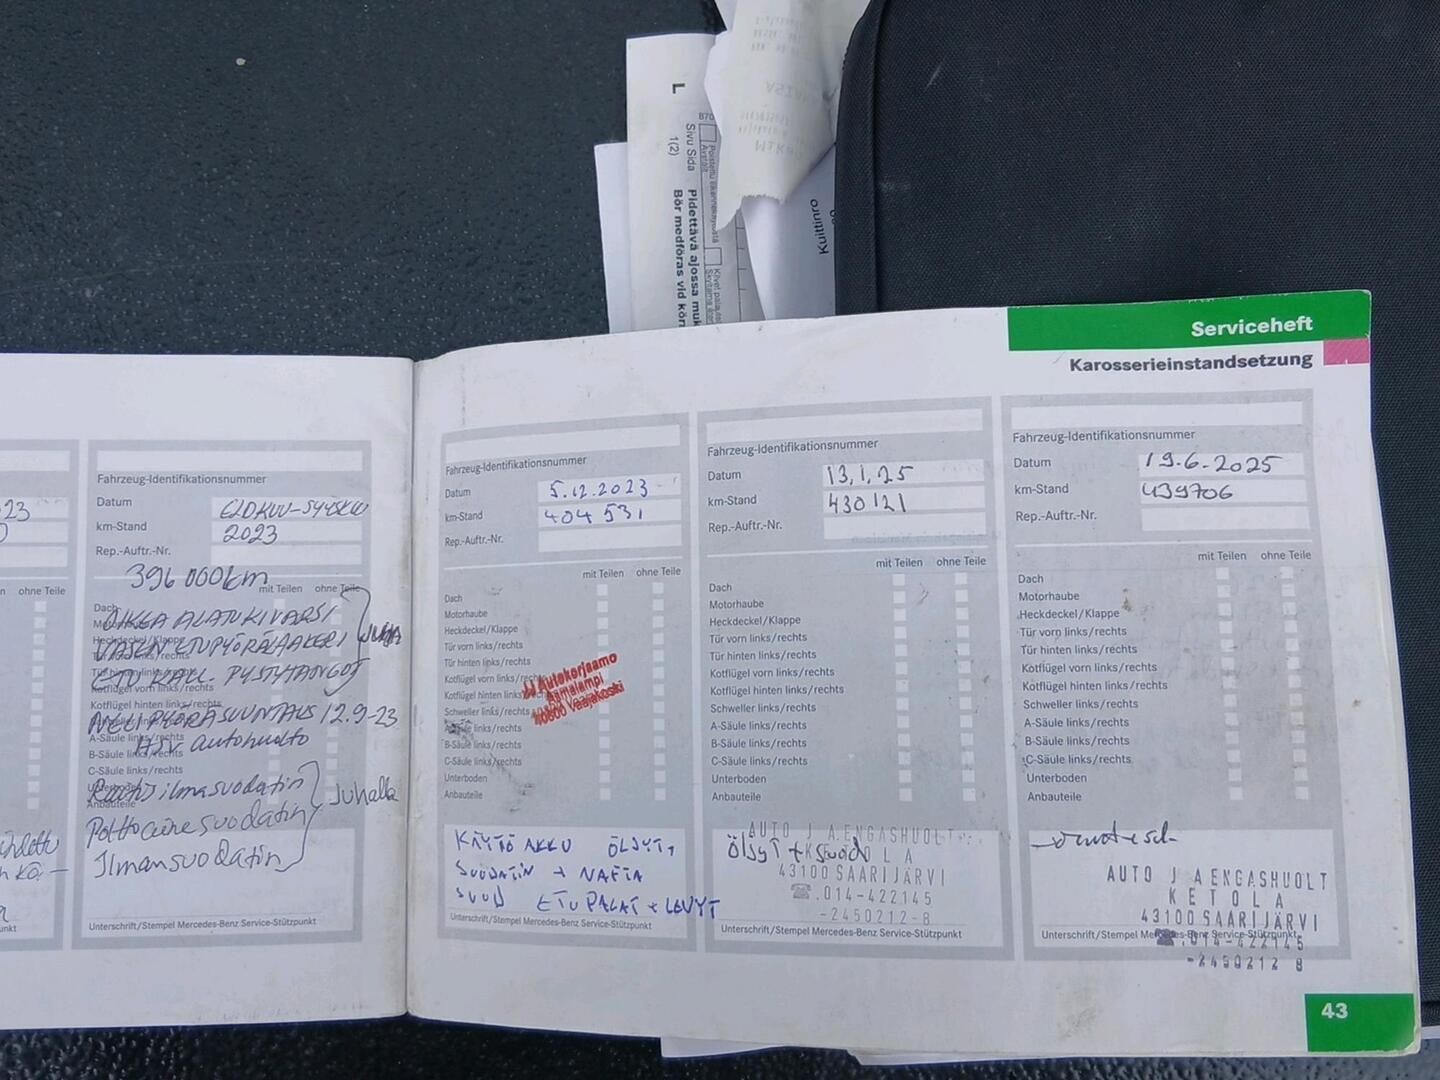 L
B70
Sivu Sida
1(2)
Pidettävä ajossa muk
Bör medföras vid körn
Kuittinro
Serviceheft
Karosserieinstandsetzung
23
ohne Teile
Fahrzeug-Identifikationsnummer
Datum ELOKUU-SYYSKUU
km-Stand 2023
Rep.-Auftr.-Nr.
396 000km
mit Teilen ohne Teile
Dach
OIKEA ALATUKIVARSI
VASEN ETUPYÖRÄLAAKERI
ETU KALL. PYSTYTANGOT
JUHA
Tür hinten links/rechts
Kotflügel vorn links/rechts
NELIPYÖRÄSUUNTAUS 12.9-23
A-Säule links/rechts
B-Säule links/rechts
C-Säule links/rechts
Anbauteile
ilmasuodatin
Polttoainesuodatin
Ilmansuodatin
Juhalla
Unterschrift/Stempel Mercedes-Benz Service-Stützpunkt
Fahrzeug-Identifikationsnummer
Datum 5.12.2023
km-Stand 404 531
Rep.-Auftr.-Nr.
mit Teilen ohne Teile
Dach
Motorhaube
Heckdeckel/Klappe
Tür vorn links/rechts
Tür hinten links/rechts
Kotflügel vorn links/rechts
Kotflügel hinten links/rechts
Schweller links/rechts
A-Säule links/rechts
B-Säule links/rechts
C-Säule links/rechts
Unterboden
Anbauteile
JJ Autokorjaamo
Vaajakoski
KÄYTTÖ AKKU ÖLJYT,
SUODATIN + NAFTA
SUOD ETUPALAT + LEVYT
Unterschrift/Stempel Mercedes-Benz Service-Stützpunkt
Fahrzeug-Identifikationsnummer
Datum 13,1,25
km-Stand 430121
Rep.-Auftr.-Nr.
mit Teilen ohne Teile
Dach
Motorhaube
Heckdeckel/Klappe
Tür vorn links/rechts
Tür hinten links/rechts
Kotflügel vorn links/rechts
Kotflügel hinten links/rechts
Schweller links/rechts
A-Säule links/rechts
B-Säule links/rechts
C-Säule links/rechts
Unterboden
Anbauteile
AUTO J A ENGASHUOLT
Öljyt + suod
KETOLA
43100 SAARIJÄRVI
☎.014-422145
-2450212-8
Unterschrift/Stempel Mercedes-Benz Service-Stützpunkt
Fahrzeug-Identifikationsnummer
Datum 19.6.2025
km-Stand 439706
Rep.-Auftr.-Nr.
mit Teilen ohne Teile
Dach
Motorhaube
Heckdeckel/Klappe
Tür vorn links/rechts
Tür hinten links/rechts
Kotflügel vorn links/rechts
Kotflügel hinten links/rechts
Schweller links/rechts
A-Säule links/rechts
B-Säule links/rechts
C-Säule links/rechts
Unterboden
Anbauteile
AUTO J A ENGASHUOLT
KETOLA
43100 SAARIJÄRVI
Unterschrift/Stempel Mercedes-Benz Service-Stützpunkt
☎.014-422145
-2450212 8
43